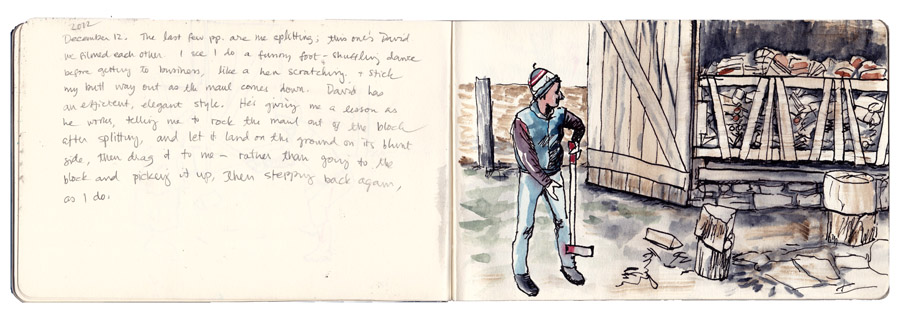 2022
December 12. The last few pp. are me splitting; this one's David
We filmed each other. I see I do a funny foot-shuffling dance
before getting to business, like a hen scratching. + stick
my butt way out as the maul comes down. David has
an efficient, elegant style. He's giving me a lesson as
he works, telling me to rock the maul out of the block
after splitting, and let it land on the ground on its blunt
side, then drag it to me — rather than going to the
block and picking it up, then stepping back again,
as I do.